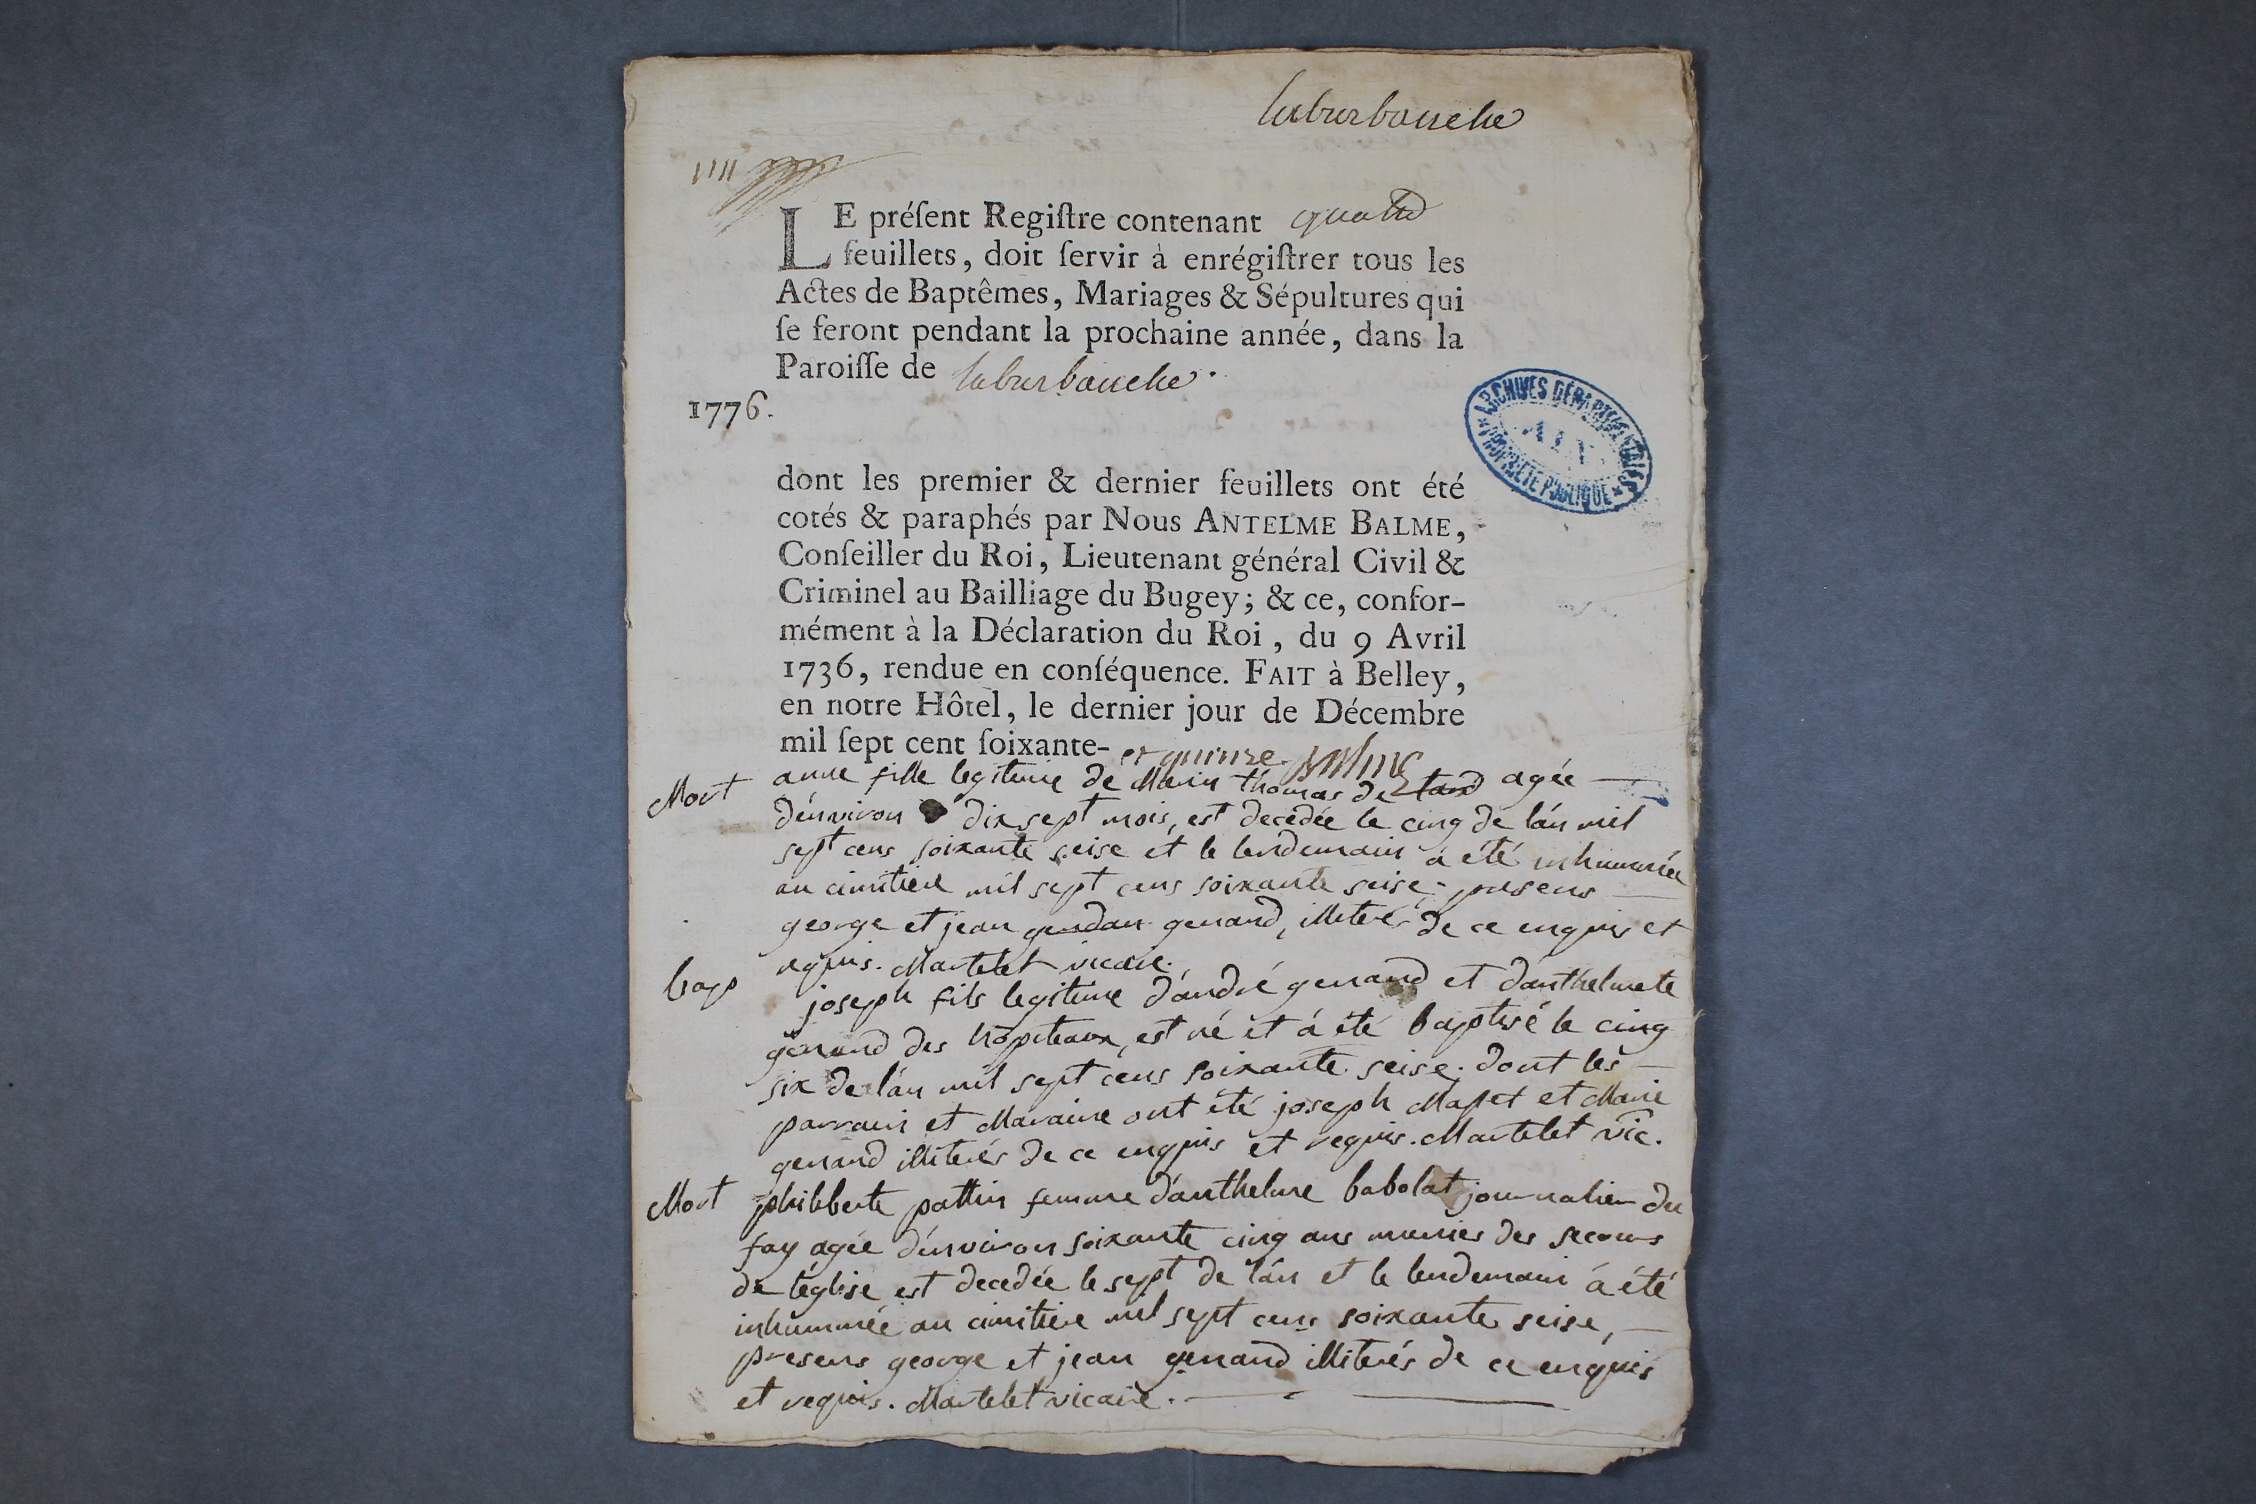 laburbanche
1111
LE préſent Regiſtre contenant quatre
feuillets, doit ſervir à enrégiſtrer tous les
Actes de Baptêmes, Mariages & Sépultures qui
ſe feront pendant la prochaine année, dans la
Paroiſſe de laburbanche.
1776.
ARCHIVES DÉPARTEMENTALES
AIN
PROPRIÉTÉ PUBLIQUE
dont les premier & dernier feuillets ont été
cotés & paraphés par Nous ANTELME BALME,
Conſeiller du Roi, Lieutenant général Civil &
Criminel au Bailliage du Bugey; & ce, confor-
mément à la Déclaration du Roi, du 9 Avril
1736, rendue en conſéquence. FAIT à Belley,
en notre Hôtel, le dernier jour de Décembre
mil ſept cent ſoixante- et quinze. Balme
Mort anne fille legitime de Marin thomas de agée
d'énviron dix sept mois, est decedée le cinq de lán mil
sept cens soixante seise et le lendemain á été inhumée
au cimitiere mil sept cens soixante seise, presens
george et jean genand, illiterés de ce enquis et
requis. Martelet vicaire.
bap joseph fils legitime d'andré genand et d'anthelmete
genand des hôpiteaux, est né et á été baptisé le cinq
six de lán mil sept cens soixante seise. dont les
parrain et Maraine ont été joseph et Marie
genand illiterés de ce enquis et requis. Martelet vic.
Mort philiberte pattin femme d'anthelme babolat journalier du
fay agée d'énviron soixante cinq ans munies des secours
de leglise est decedée le sept de lán et le lendemain á été
inhummée au cimitiere mil sept cens soixante seise,
presens george et jean genand illiterés de ce enquis
et requis. Martelet vicaire.